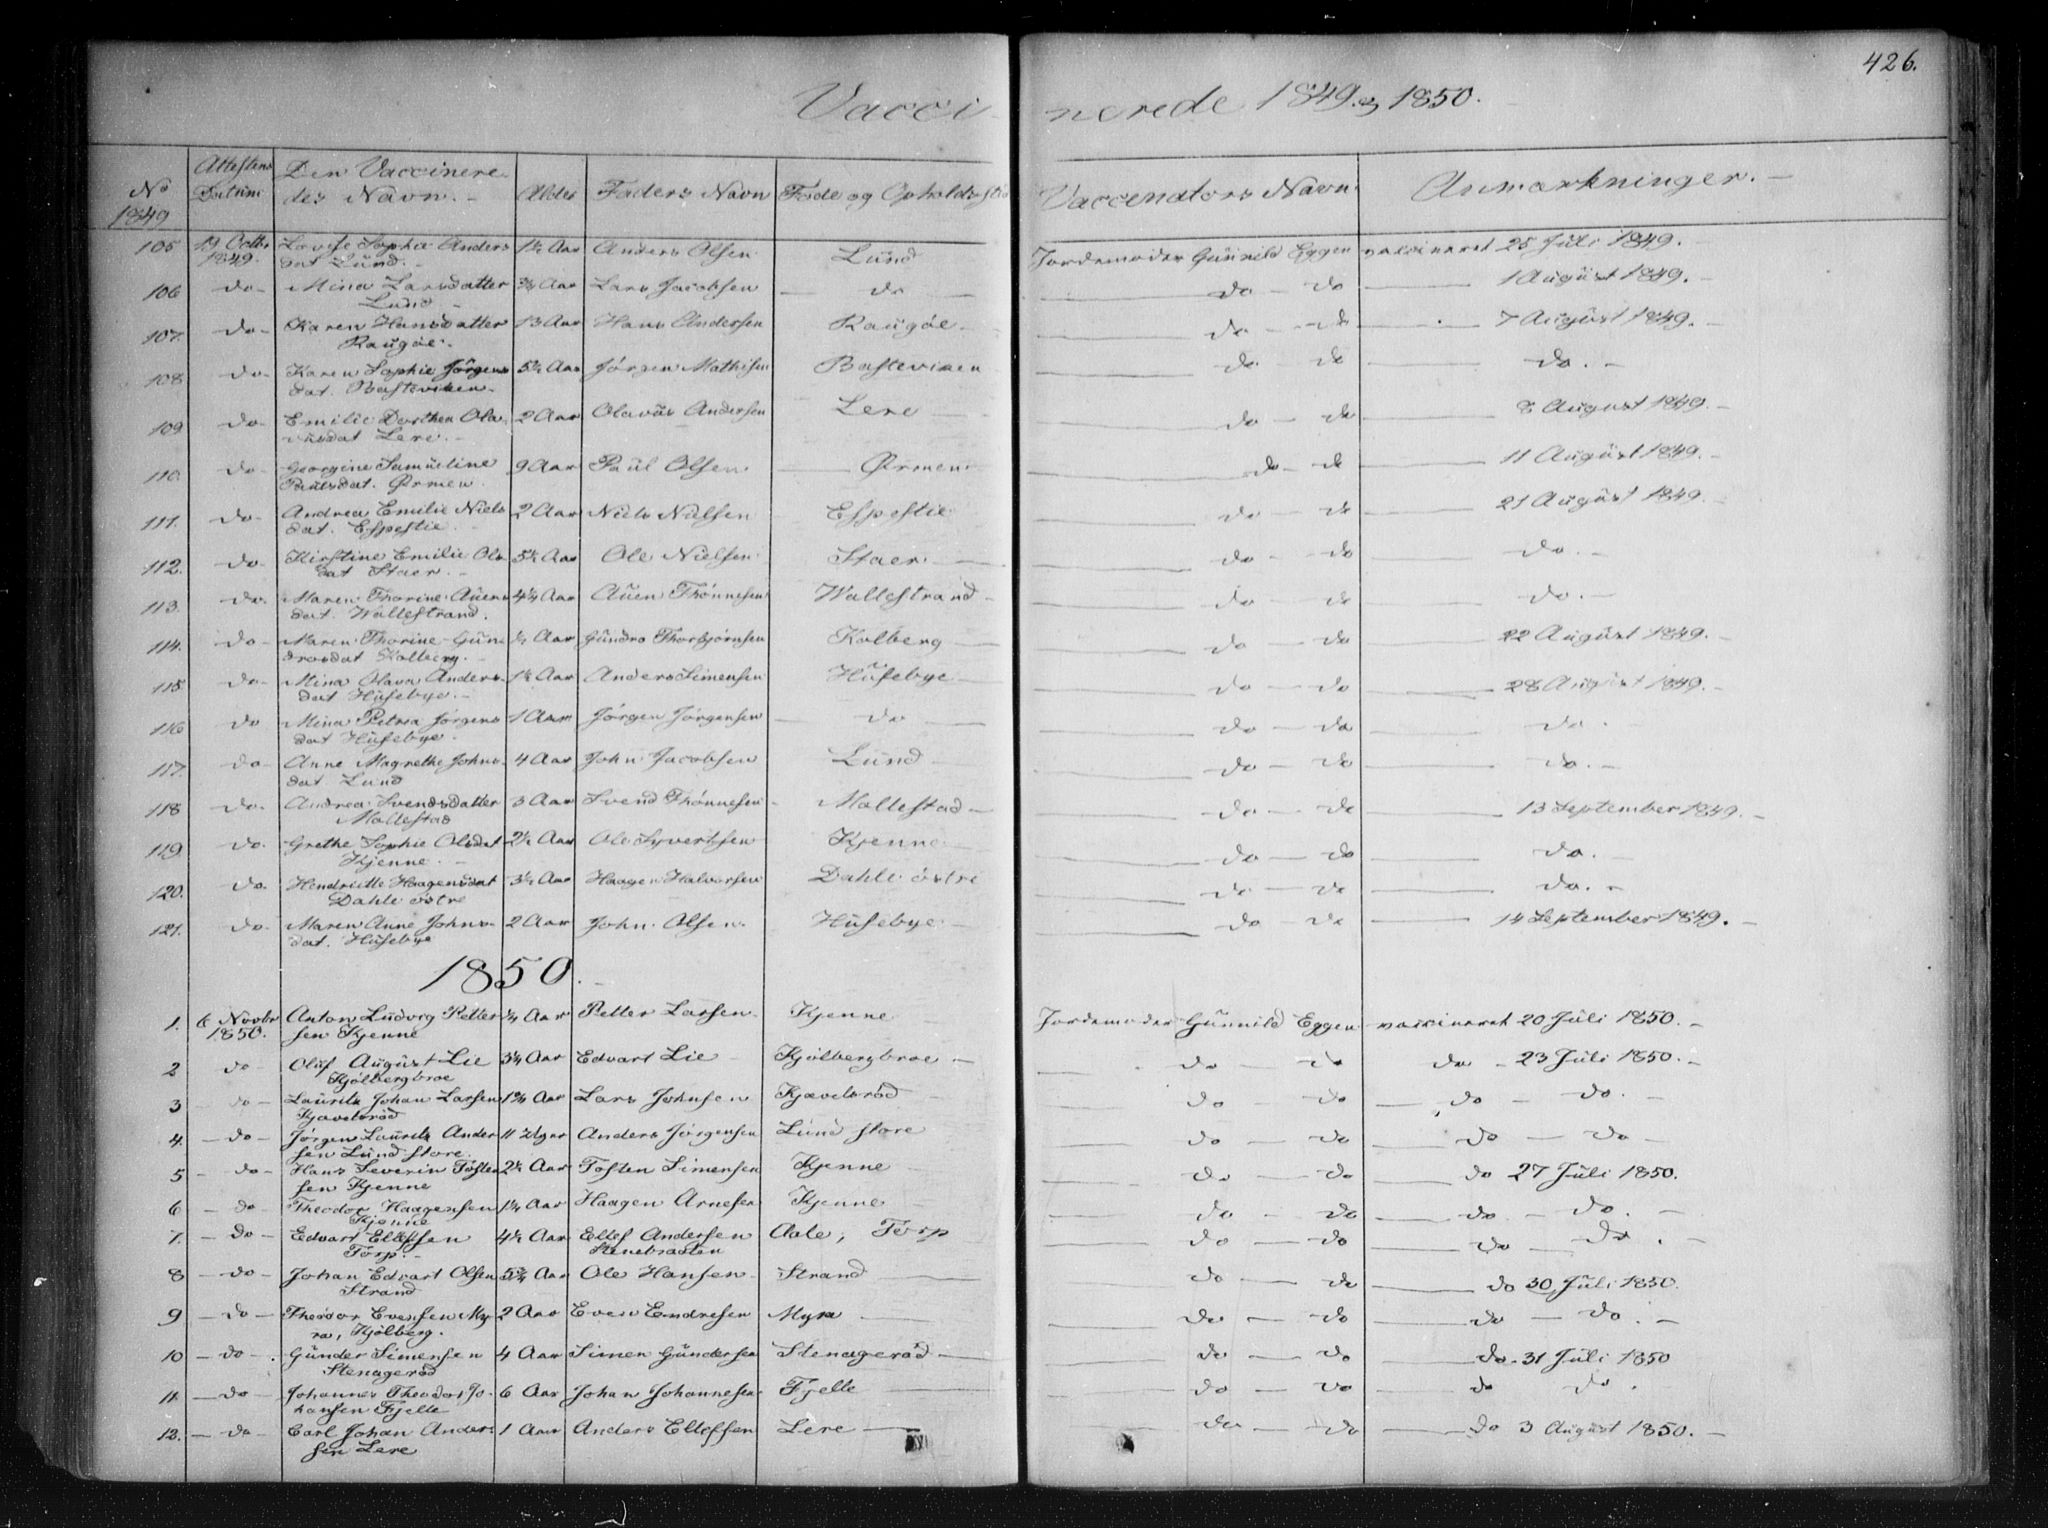 426.
Vacci-nerede 1849 & 1850.
No 1849 | Attestens Datum | Den Vaccinere-des Navn. | Alder | Faders Navn | Føde og Opholds sted | Vaccinators Navn | Anmærkninger.
105 | 19 Octbr 1849. | Lovise Sophie Anders dat Lünd. | 1½ Aar | Anders Olsen | Lünd | Jordemoder Günnild Eggen | vaccineret 25 Jüli 1849.
106 | do | Mina Larsdatter Lund | ¾ Aar | Lars Jacobsen | do | do - do | 1 August 1849.
107. | do | Karen Hansdatter Raugøe. | 13 Aar | Hans Andersen | Raugøe | do - do | 7 Augüst 1849.
108 | do | Karen Sophie Jørgens dat. Basteviken | 5½ Aar | Jørgen Mathisen | Basteviken | do - do | do.
109 | do | Emilie Dorthea Ola vüsdat Lere. | 2 Aar | Olavüs Andersen | Lere | do - do | 8 August 1849.
110. | do | Georgine Samüeline Paülsdat. Ørmen. | 9 Aar | Paül Olsen | Ørmen | do - do | 11 Augüst 1849.
111. | do | Andrea Emilie Niels dat. Espestie | 2 Aar | Niels Nielsen | Espestie | do - do | 21 Augüst 1849.
112. | do | Kirstine Emilie Ols dat Staer. | 5½ Aar | Ole Nielsen | Staer | do - do | do.
113. | do | Maren Thorine Auens dat. Wallestrand. | 4¼ Aar | Aüen Thönnesen | Wallestrand | do - do | do.
114. | do | Maren Thorine Gün drosdat Kolberg. | ½ Aar | Gündro Thorbjørnsen | Kolberg | do - do | 22 Augüst 1849.
115. | do | Mina Olava Anders dat Hüsebye. | 1½ Aar | Anders Simensen | Hüsebye | do - do | 28 Augüst 1849.
116 | do | Mina Petrea Jørgens dat Hüsebye. | 1 Aar | Jørgen Jørgensen | do | do - do | do.
117. | do | Anne Magrethe Johns dat Lund | 4 Aar | John Jacobsen | Lünd | do - do | do.
118 | do | Andrea Svendsdatter Mallestad | 3 Aar | Svend Thönnesen | Mallestad | do - do | 13 September 1849.
119. | do | Grethe Sophie Olsdat Kjenne. | 2½ Aar | Ole Syvertsen | Kjenne | do - do | do.
120. | do | Hendriette Haagensdat Dahle östre | 3½ Aar | Haagen Halvorsen | Dahle östre | do - do | do.
121. | do | Maren Anne Johns dat. Hüsebye | 2 Aar | John Olsen | Hüsebye | do - do | 14 September 1849.
1850.
1. | 6 Novbr 1850. | Anton Lüdvig Petter sen Kjenne | ¾ Aar | Petter Larsen | Kjenne | Jordemoder Günnild Eggen | vaccineret 20 Jüli 1850.
2 | do | Olüf Augüst Lie Kjølbergbroe | 3¼ Aar | Edvart Lie | Kjølbergbroe | do - do | do - 23 Jüli 1850.
3 | do | Lauritz Johan Larsen Kjavelsröd | 1¾ Aar | Lars Johnsen | Kjavelsröd | do - do | do - do.
4. | do | Jørgen Lauritz Ander sen Lünd store. | 11 Uger | Anders Jørgensen | Lünd store | do - do | do - do
5 | do | Hans Severin Tosten sen Kjenne | 2½ Aar | Tosten Simensen | Kjenne | do - do | do 27 Jüli 1850.
6 | do | Theodor Haagensen Kjenne | 1¼ Aar | Haagen Arnesen | Kjenne | do - do | do - do.
7. | do | Edvart Ellefsen Torp. | 4½ Aar | Ellef Andersen Stenebraaten | Aale, Torp | do - do | do - do.
8 | do | Johan Edvart Olsen Strand | 5¾ Aar | Ole Hansen | Strand | do - do | do 30 Jüli 1850.
9 | do | Theodor Evensen My ra, Kjölberg. | 2 Aar | Even Emdresen | Myra | do - do | do - do.
10 | do | Günder Simensen Stenageröd | 4 Aar | Simen Gündersen | Stenageröd | do - do | do 31 Jüli 1850
11. | do | Johannes Theodor Jo hansen Fjelle | 6 Aar | Johan Johannesen | Fjelle | do - do | do do.
12. | do | Carl Johan Anders sen Lere | 1 Aar | Anders Ellefsen | Lere | do - do | do 3 August 1850.